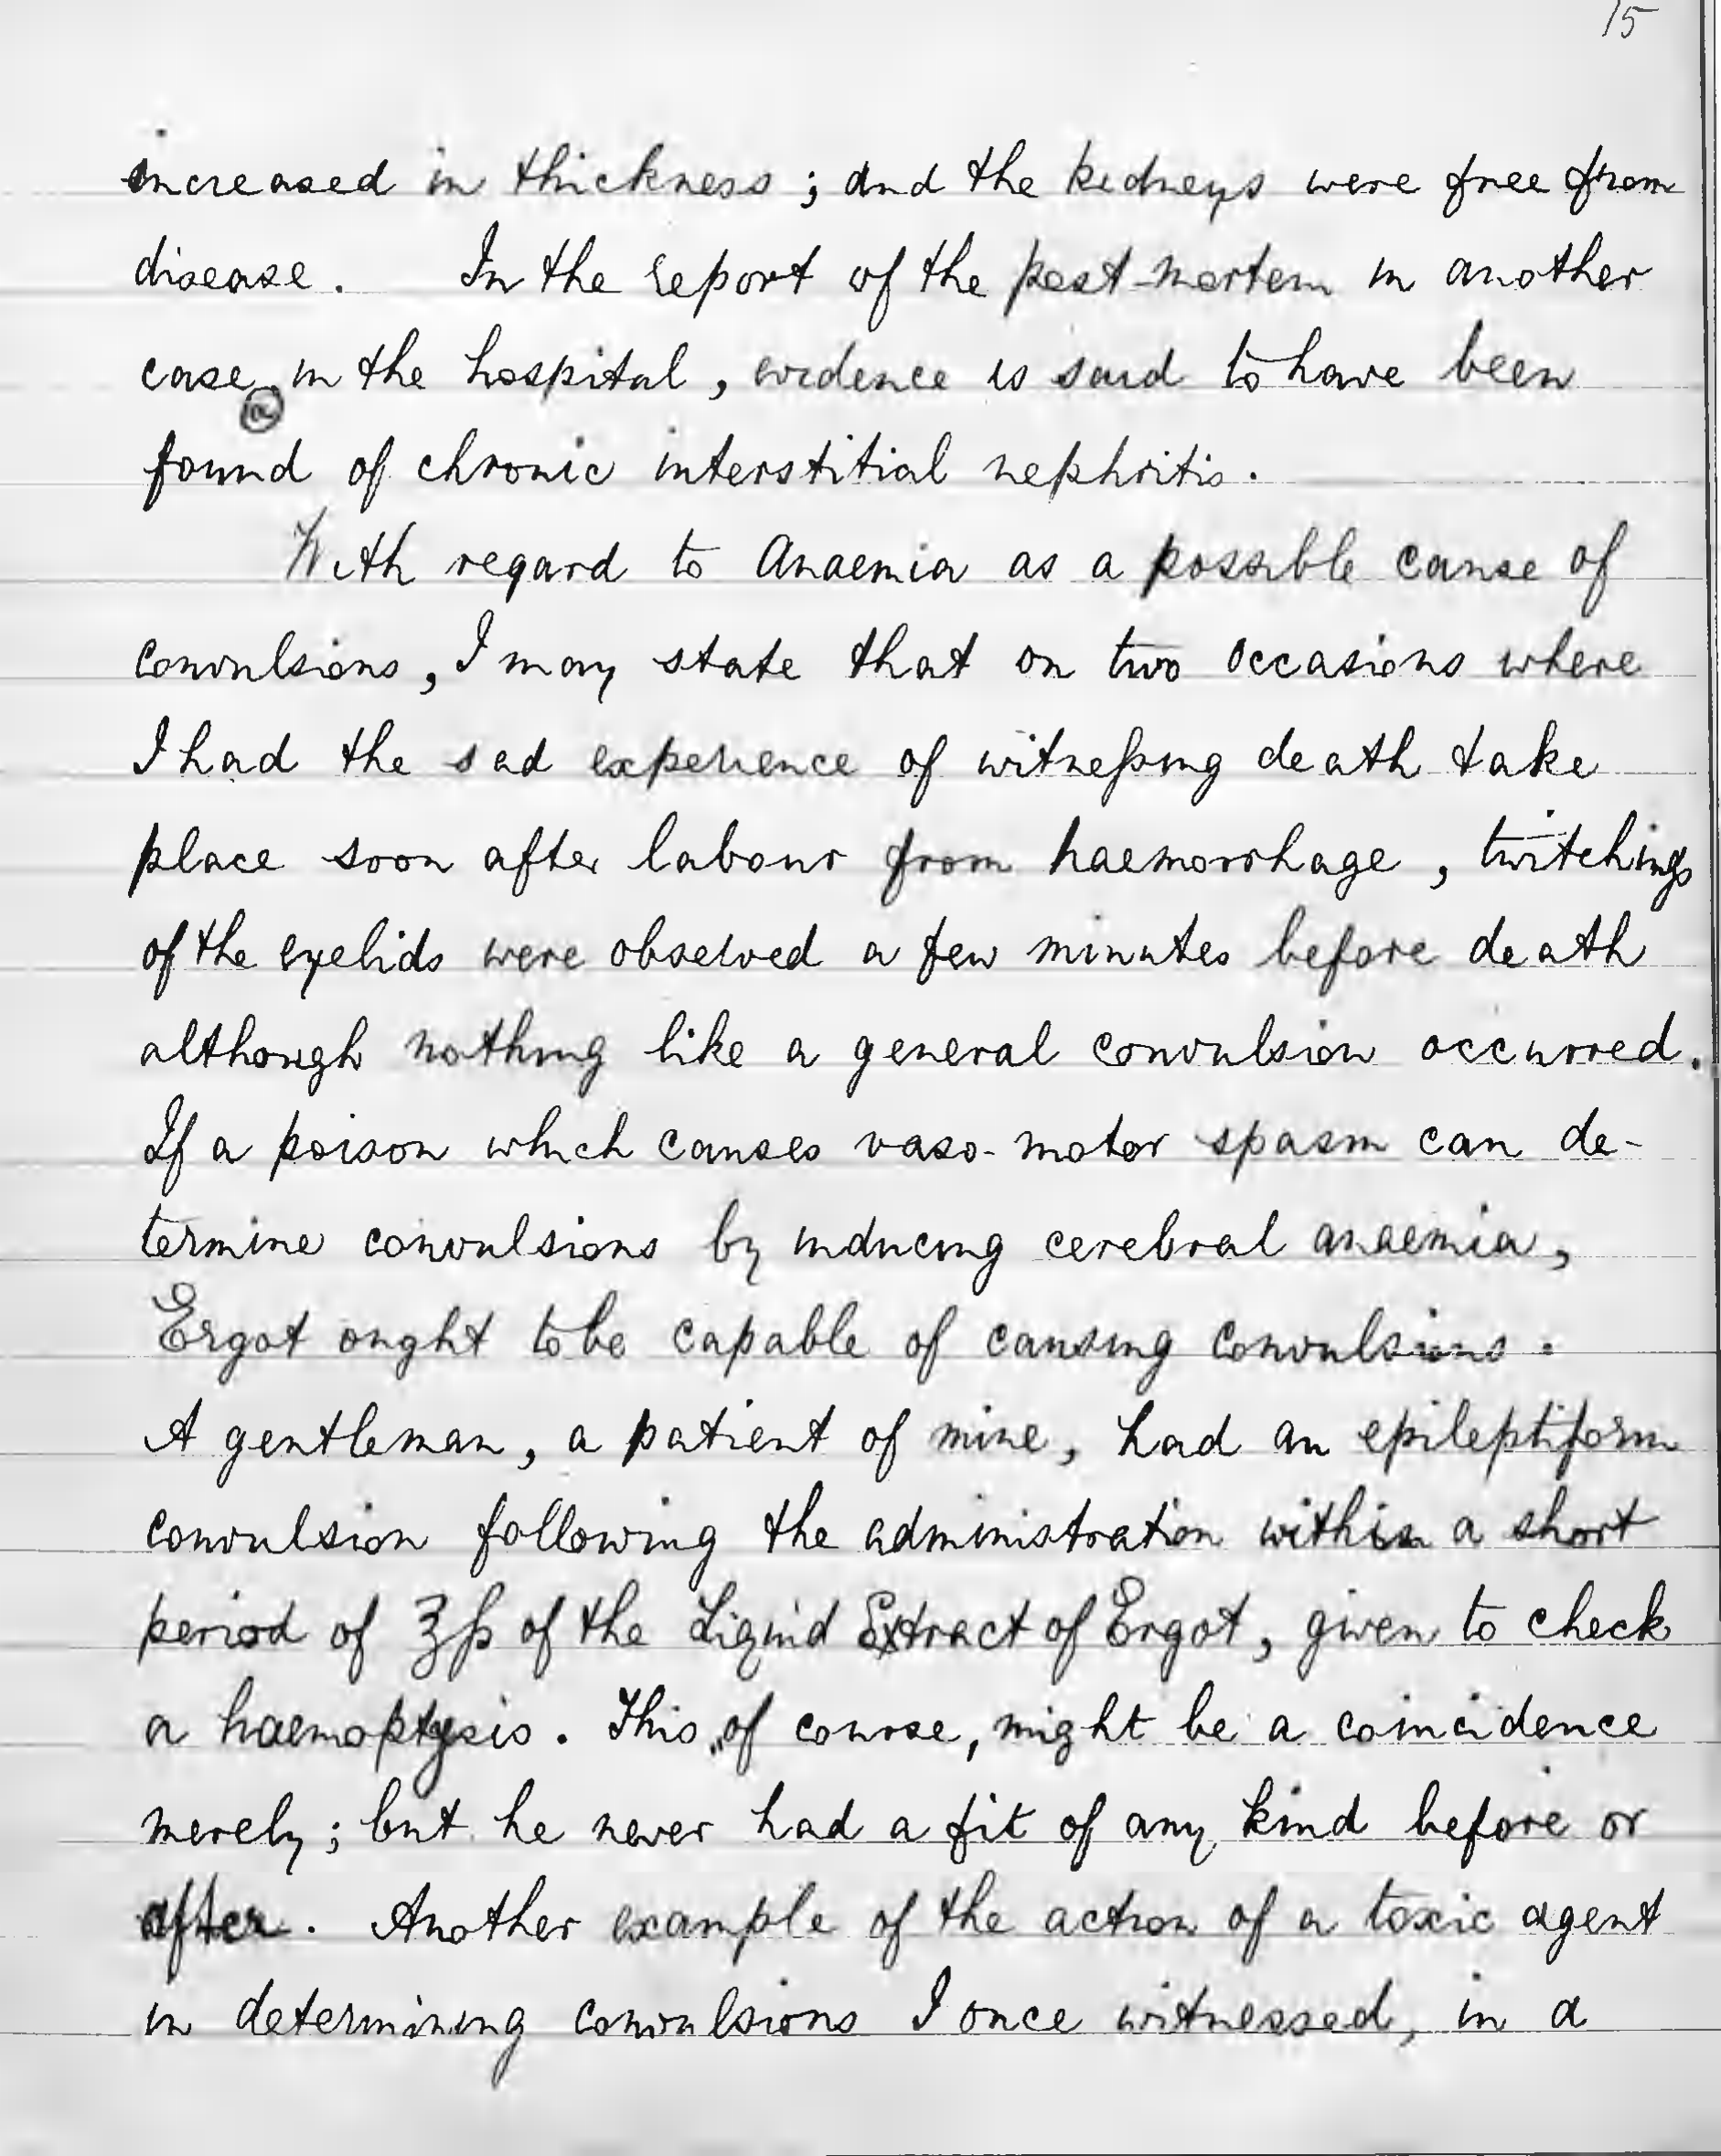 15
increased in thickness; and the kidneys were free from
disease. In the report of the post-mortem in another
case, in the hospital, evidence is said to have been
(a)
found of chronic interstitial nephritis.
With regard to Anaemia as a possible cause of
convulsions, I may state that on two occasions where
I had the sad experience of witneſsing death take
place soon after labour from haemorrhage, twitchings
of the eyelids were observed a few minutes before death
although nothing like a general convulsion occurred.
If a poison which causes vaso-motor spasm can de-
termine convulsions by inducing cerebral anaemia,
Ergot ought to be capable of causing convulsions.
A gentleman, a patient of mine, had an epileptiform
convulsion following the administration within a short
period of ʒß of the Liquid Extract of Ergot, given to check
a haemoptysis. This, of course, might be a coincidence
merely; but he never had a fit of any kind before or
after. Another example of the action of a toxic agent
in determining convulsions I once witnessed, in a